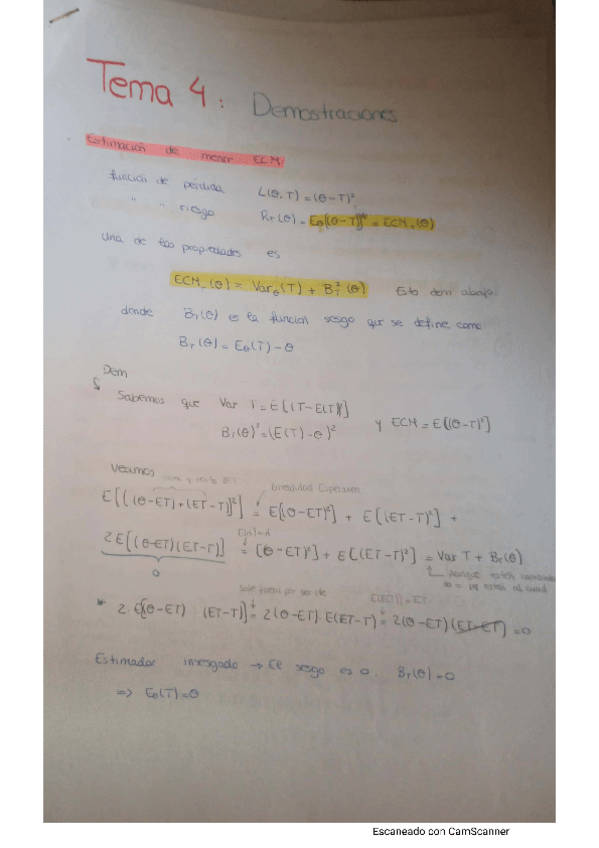 Tema 4: Demostraciones
Estimación de menor ECM:
función de pérdida L(θ,T)=(θ-T)²
" " riesgo R_T(θ)=E_θ[(θ-T)²]=ECM_T(θ)
Una de las propiedades es
ECM_T(θ) = Var_θ(T) + B_T²(θ) Esto dem abajo.
donde B_T(θ) es la función sesgo que se define como
B_T(θ) = E_θ(T) - θ
Dem
Sabemos que Var T = E[(T-E(T))²]
B_T(θ)²=(E(T)-θ)² y ECM = E[(θ-T)²]
Veamos
sumo y resto ET
Linealidad Esperanza
E[((θ-ET)+(ET-T))²] = E[(θ-ET)²] + E[(ET-T)²] +
2E[(θ-ET)(ET-T)] = (θ-ET)² + E[(ET-T)²] = Var T + B_T(θ)
0
Aunque estén
Sale fuera por ser cte
* 2·E[(θ-ET) (ET-T)] = 2(θ-ET)·E(ET-T) = 2(θ-ET)(ET-ET)=0
Estimador insesgado → El sesgo es 0. B_T(θ)=0
=> E_θ(T)=θ
Escaneado con CamScanner